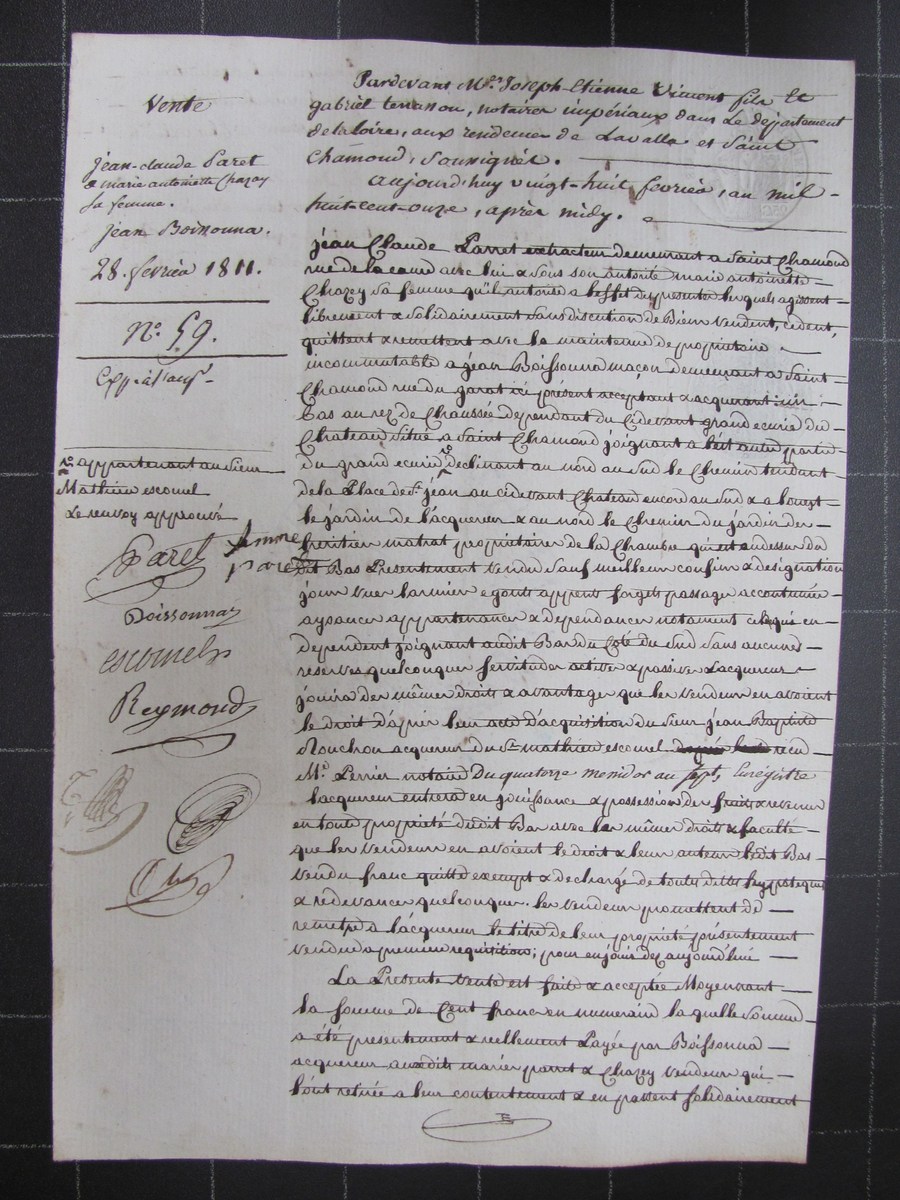 Vente
jean-claude Paret
& marie antoinette Chazey
sa femme.
jean Boissonna.
28. fevrier 1811.
N°. 59.
appartenant au sieur
Mathieu escomel
Le renvoy approuvé
Paret femme
paret
Boissonnas
escomel
Reymond
Pardevant Mes. Joseph-Etienne Vincent fils Et
gabriel terrasson, notaires impériaux dans Le departement
de la loire, aux rendence de Lavalla et Saint
Chamond, Soussignés.
aujourd'huy vingt-huit fevrier, an mil
huit-cent-onze, après midy.
jean Claude Parret demeurant a Saint Chamond
rue de la avec lui & sous son autorité marie antoinette
Chazey sa femme qu'il autorise a l'effet des presentes lesquels agissent
librement & solidairement sans discution de Bien Vendent, cedent,
quittent & remettent avec la maintenue de propriétaire
incommutable a jean Boissonna maçon demeurant a Saint
Chamond rue du garat ici présent acceptant & acquerant un
Bas au rez de Chaussée dependant du Cidevant grand ecurie du
Chateau situé a Saint Chamond joignant a l'est autre partie
du grand ecurie declinant au nord au sud le Chemin tendant
de la Place de St. jean au cidevant Chateau encore au sud & a louest
le jardin de l'acquereur & au nord le Chemin du jardin des
heritiers matrat propriétaires de la Chambre qui est audessus du
dit Bas Presentement Vendu Sauf meilleur confins & désignation
jours vues larmier egouts forgets passages accoutumée
aysances appartenances & dependances notament en
dependent joignant audit Bas du Coté du Sud Sans aucunes
reserves quelconques servitudes actives & passives Lacquereur
jouira des mêmes droits & avantages que les vendeurs en avoient
le droit d'après leur acte d'acquisition du Sieur jean Baptiste
Rouchon acquereur du Sr mathieu escomel reçu
Me. Perrier notaire Du quatorze messidor an sept, Enregistré
Lacquereur entrera en jouissance & possession des fruits & revenus
en toute propriété dudit Bas avec les mêmes droits & faculté
que les vendeurs en avoient le droit & leur auteur ledit Bas
Vendu franc quitte exempt & decharge de toutes dettes hypoteques
& redevances quelconques. les vendeurs promettent de
remetre a l'acquereur le titre de leur propriété présentement
vendue a premiere requisition; pour en jouir dez aujourd'hui
La Presente Vente est faite & acceptée Moyennant
la somme de Cent francs en numeraire laquelle Somme
a été presentement & reellement Payée par Boissonna
acquereur auxdits mariés parret & Chazey vendeurs qui
l'ont retirée a leur contentement & en passent solidairement